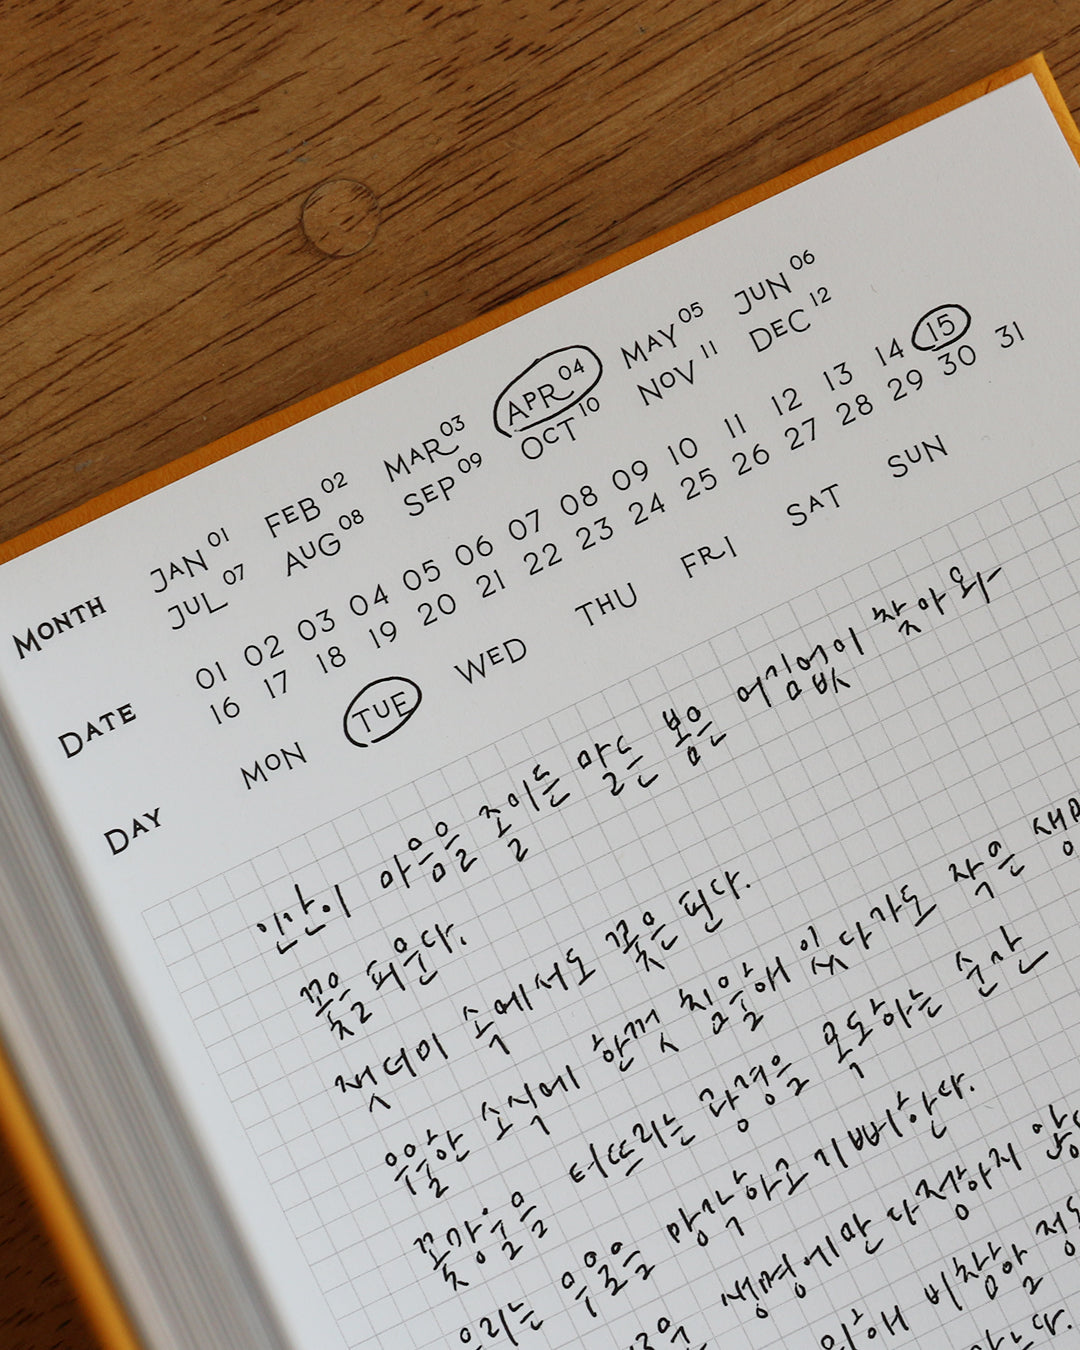 MONTH JAN 01 FEB 02 MAR 03 APR 04 MAY 05 JUN 06
JUL 07 AUG 08 SEP 09 OCT 10 NOV 11 DEC 12
DATE 01 02 03 04 05 06 07 08 09 10 11 12 13 14 15
16 17 18 19 20 21 22 23 24 25 26 27 28 29 30 31
DAY MON TUE WED THU FRI SAT SUN
인간이 마음을 졸이든 말든 봄은 어김없이 찾아와
꽃을 피운다.
잿더미 속에서도 꽃은 핀다.
우울한 소식에 한껏 침울해 있다가도 작은
꽃망울을 터뜨리는 광경을 목도하는 순간
우리는 우울을 망각하고 기뻐한다.
생명에만 다정하지
위해 비참함알